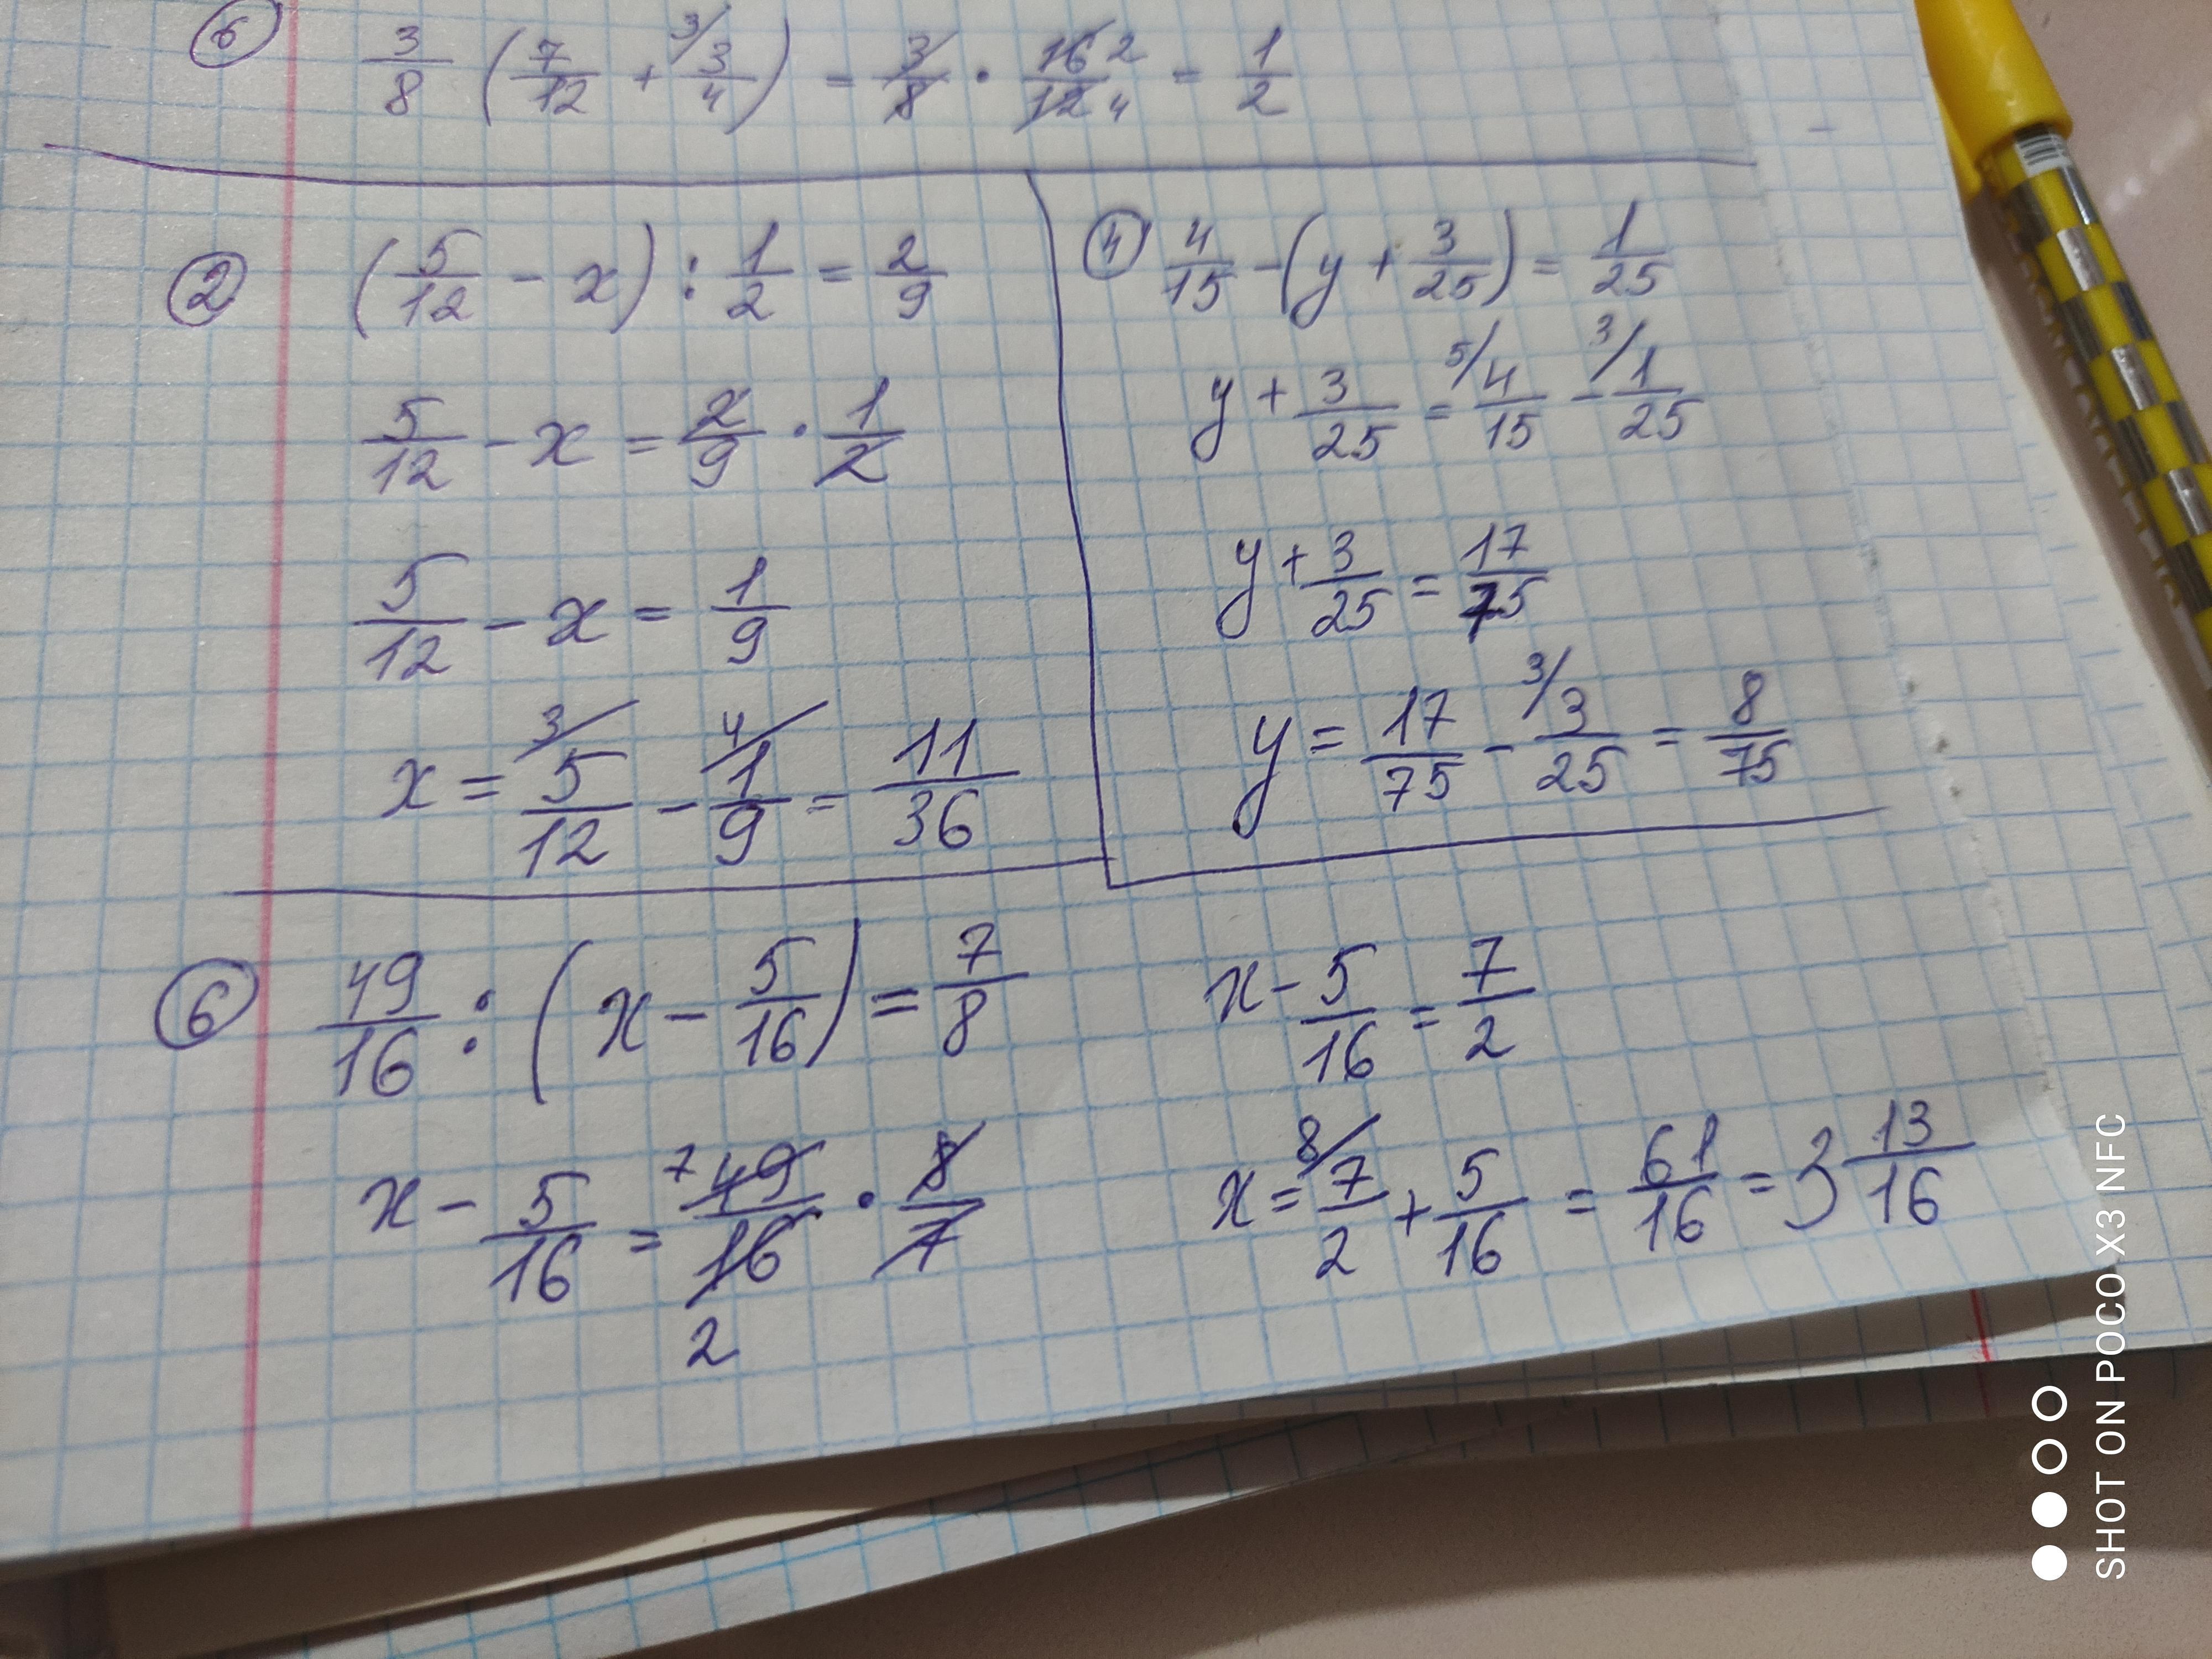 ⑥ 3/8 (7/12 + ³/3/4) = 3/8 · 16 2/12 4 = 1/2
② (5/12 - x) : 1/2 = 2/9
5/12 - x = 2/9 · 1/2
5/12 - x = 1/9
x = ³/5/12 - ⁴/1/9 = 11/36
④ 4/15 - (y + 3/25) = 1/25
y + 3/25 = ⁵/4/15 - ³/1/25
y + 3/25 = 17/75
y = 17/75 - ³/3/25 = 8/75
⑥ 49/16 : (x - 5/16) = 7/8
x - 5/16 = 7 49/16 2 · 8/7
x - 5/16 = 7/2
x = ⁸/7/2 + 5/16 = 61/16 = 3 13/16
SHOT ON POCO X3 NFC